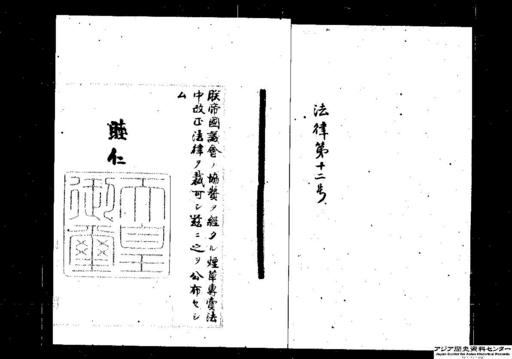 法律第十二号
朕帝國議會ノ協賛ヲ經タル煙草專賣法
中改正法律ヲ裁可シ玆ニ之ヲ公布セシ
ム
睦仁
天皇
御璽
アジア歴史資料センター
Japan Center for Asian Historical Records